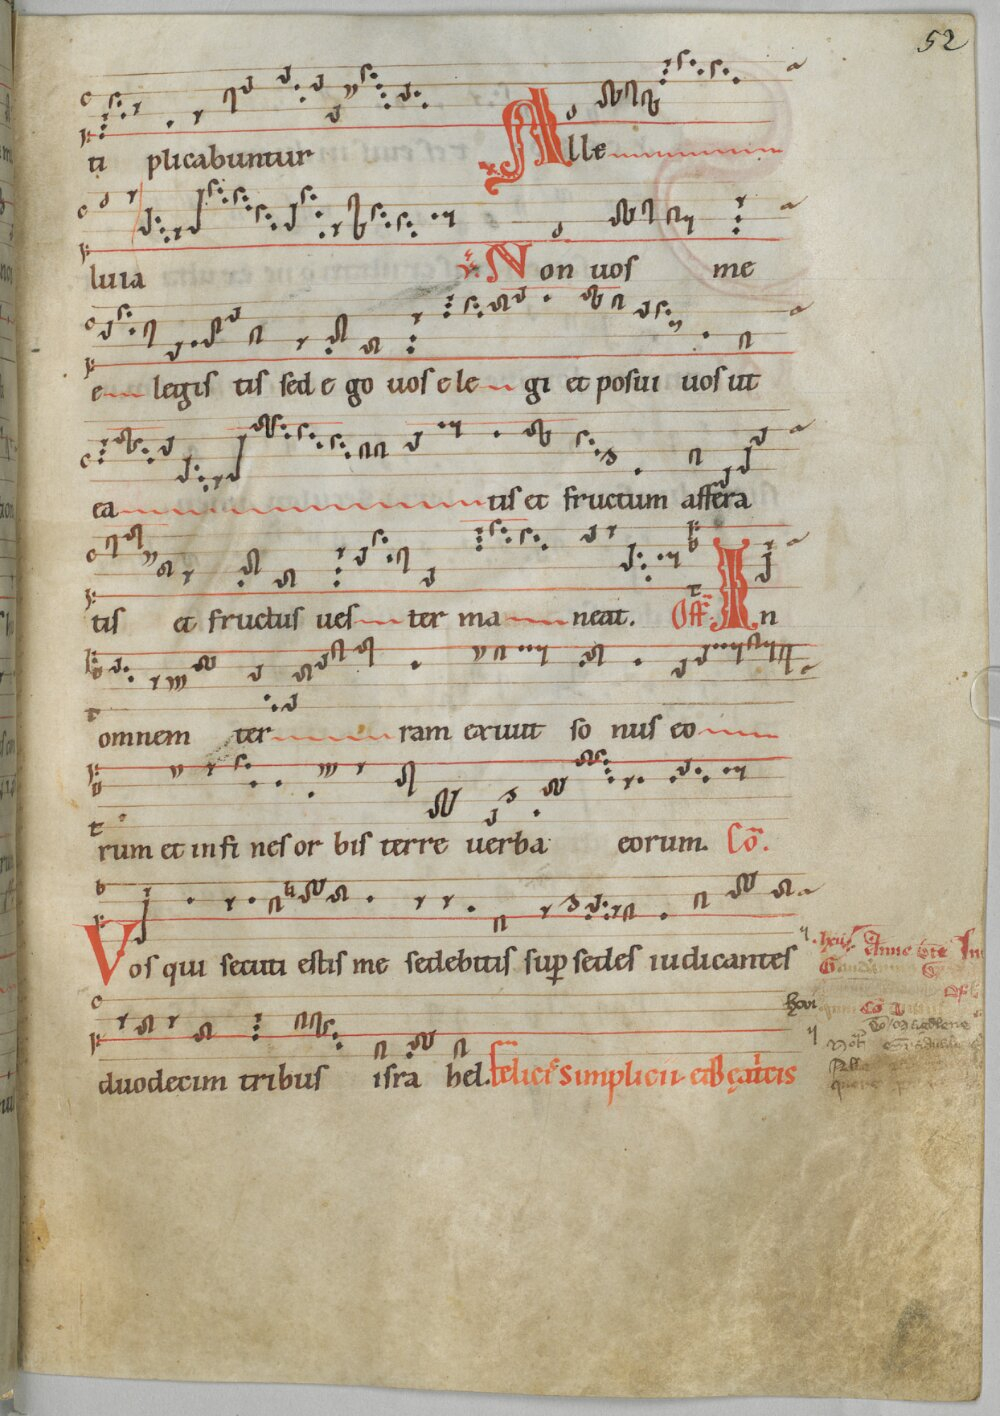 52
ti plicabuntur Alle
luia ℣. Non uos me
e legis tis sed e go uos e le gi et posui uos ut
ea tis et fructum affera
tis et fructus ues ter ma neat. Off. In
omnem ter ram exiuit so nus eo
rum et in fi nes or bis terre uerba eorum. Cō.
Vos qui secuti estis me sedebitis sup sedes iudicantes
duodecim tribus isra hel. felicis Simplicii et